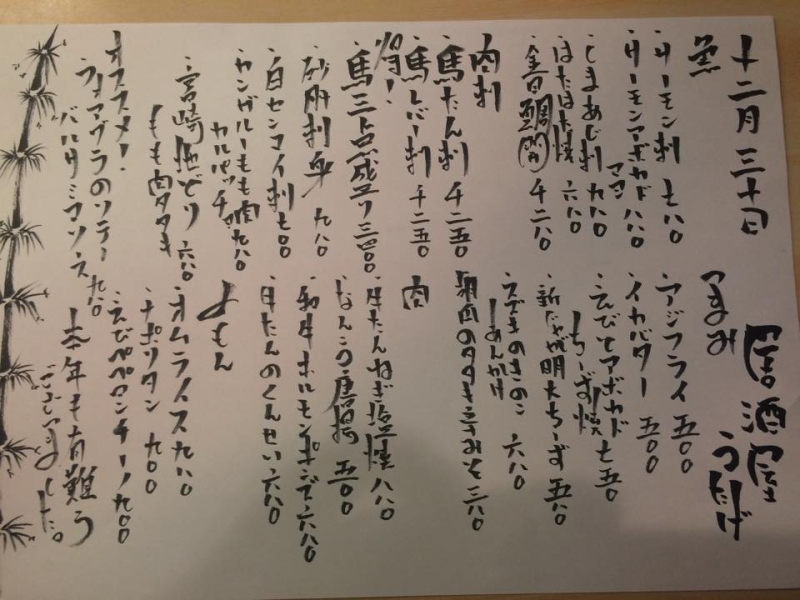 十二月三十日
居酒屋
うたげ
魚
・サーモン刺 七八〇
・サーモンアボカド 八八〇
ママン
・しまあじ刺 九八〇
・はたはた焼 六八〇
・金目鯛 千二八〇
肉刺
・馬たん刺 千二五〇
・馬レバー刺 千二五〇
・馬三点盛り 三四〇〇
・砂肝刺身 九八〇
・白センマイ刺 七〇〇
・カンガルーもも肉 九八〇
カルパッチョ
・宮崎地どり 六八〇
もも肉タタキ
オススメ!
フォアグラのソテー 九八〇
バルサミコソース
つまみ
・アジフライ 五〇〇
・イカバター 五〇〇
・えびとアボカド 七五〇
ちーず焼
・新じゃが明太ちーず 五八〇
・えできのきのこ 六八〇
しあんかけ
肉のタタキ 三八〇
肉
・牛たんねぎ塩焼 八八〇
・なんこつ唐揚 五〇〇
・和牛ホルモンポン酢 六八〇
・牛たんのくんせい 六八〇
〆もん
・オムライス 九八〇
・ナポリタン 九〇〇
・えびペペロンチーノ 九〇〇
本年も有難う
ございました。